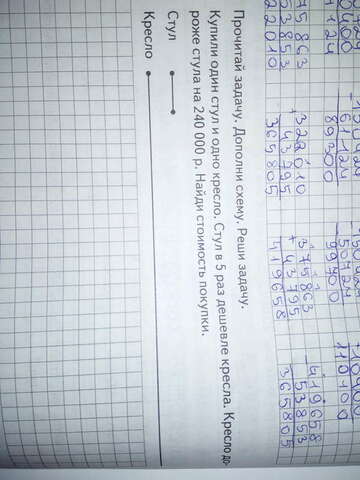 1124
- 150424
61124
89300
75863
53853
22010
+ 322010
43795
365805
+ 375863
43795
419658
- 419658
53853
365805
Прочитай задачу. Дополни схему. Реши задачу.
Купили один стул и одно кресло. Стул в 5 раз дешевле кресла. Кресло до-
роже стула на 240 000 р. Найди стоимость покупки.
Стул
Кресло